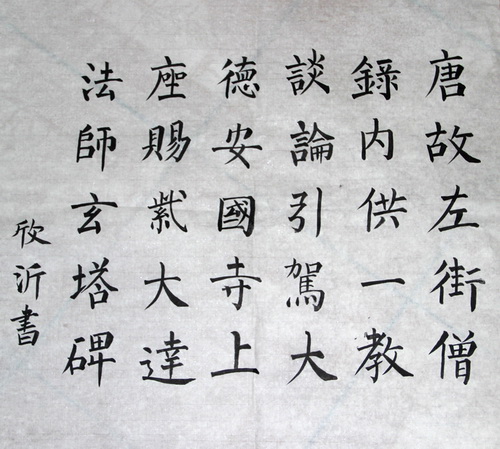 唐故左街僧
錄内供一教
談論引駕大
德安國寺上
座賜紫大達
法師玄塔碑
欣沂書